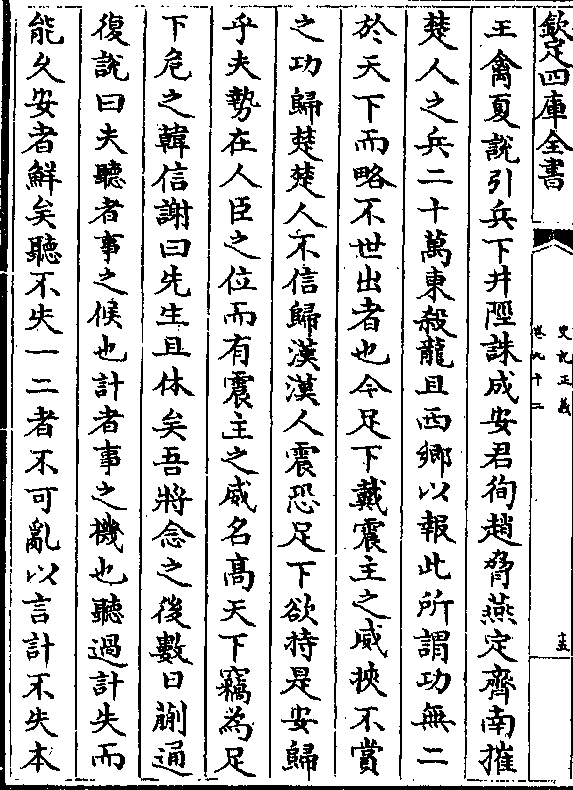 欽定四庫全書
史記正義
卷九十二
十五
王禽夏說引兵下井陘誅成安君徇趙脅燕定齊南摧
楚人之兵二十萬東殺龍且西鄉以報此所謂功無二
於天下而略不世出者也今足下戴震主之威挾不賞
之功歸楚楚人不信歸漢漢人震恐足下欲持是安歸
乎夫勢在人臣之位而有震主之威名髙天下竊為足
下危之韓信謝曰先生且休矣吾將念之後數日蒯通
復說曰夫聽者事之候也計者事之機也聽過計失而
能久安者鮮矣聽不失一二者不可亂以言計不失本